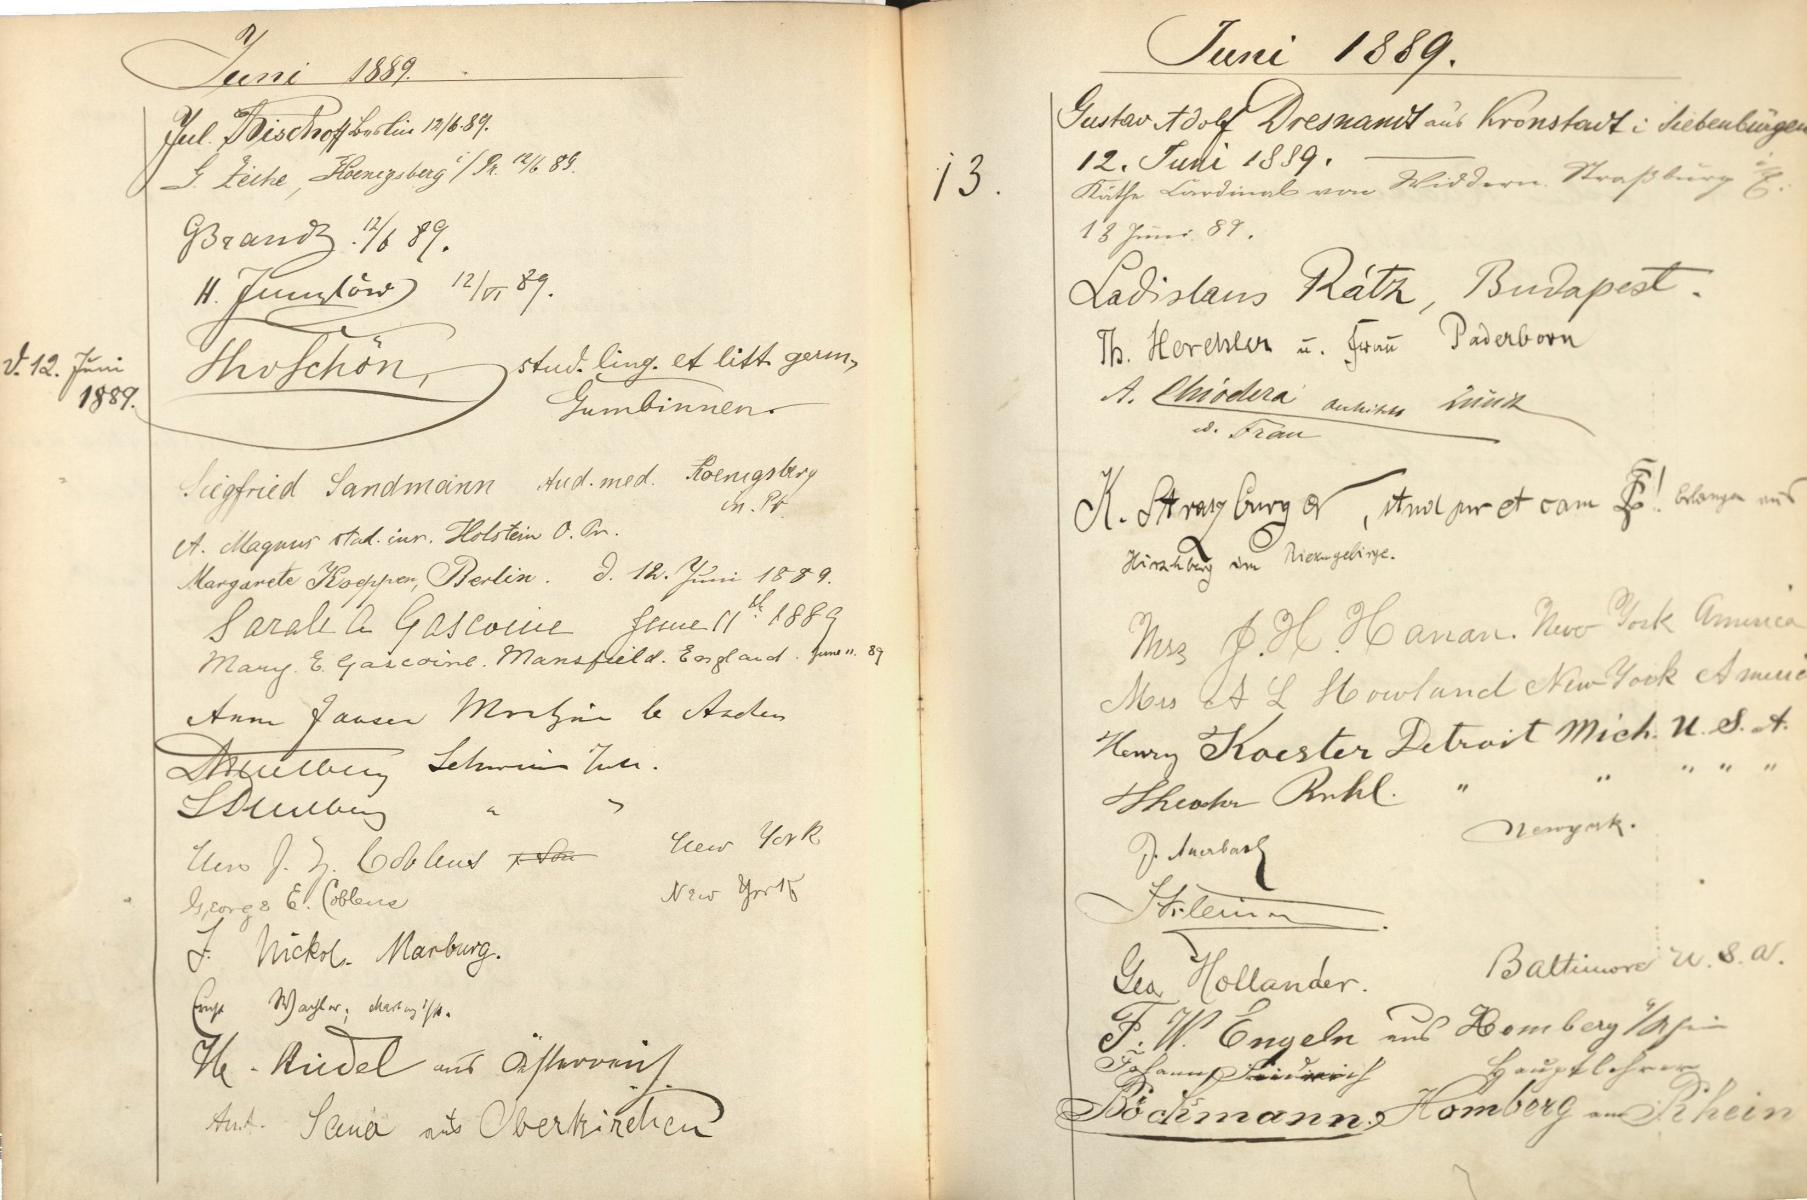 Juni 1889.
Jul. Bischoff Berlin 12/6.89.
G. Koenigsberg i/Pr. 12/6 89.
GBrandt. 12/6 89.
H. 12/VI 89.
d. 12. Juni
1889.
ThvSchön, stud. ling. et litt. germ,
Gumbinnen.
Siegfried Sandmann stud. med. Koenigsberg
in. Pr.
A. Magnus stud. iur. Holstein O. Pr.
Margarete Koeppen, Berlin. d. 12. Juni 1889.
Sarah A Gascoine June 11th 1889
Mary. E. Gascoine. Mansfield. England. June 11. 89
Anna Jansen b Aachen
" "
J. Coblens New York
George E. Coblens New York
F. Nickol. Marburg.
Ernst
Riedel aus Österreich.
Ant. aus Oberkirchen
Juni 1889.
Gustav Adolf Dresnandt aus Kronstadt i Siebenbürgen
12. Juni 1889.
13.
Käthe Cardinal von Widdern. Straßburg i/E.
13 Juni 89.
Ladislaus Rátz, Budapest.
Th. Herchler u. Frau Paderborn
A. Chiodera Zürich
u. Frau
K. Straszburger, stud jur et cam Erlangen aus
Hirschberg im Riesengebirge.
Mrs J. H. Hanan. New York America
Mrs A L Howland New York America
Henry Koester Detroit Mich. U. S. A.
Theodor Ruhl. " " " " "
J. Auerbach Newyork.
Geo. Hollander. Baltimore U. S. A.
F. W. Engeln aus Homberg a/Rhein
Johann Friedrich Hauptlehrer
Böckmann, Homberg am Rhein